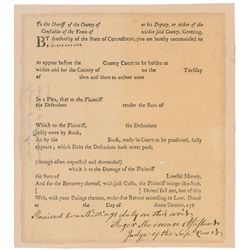 To the Sheriff of the County of or his Deputy, or either of the
Constables of the Town of within said County, Greeting.
BY Authority of the State of CONNECTICUT, you are hereby commanded to
Summon
to appear before the County Court to be holden at
within and for the County of on the Tuesday
of then and there to answer unto
In a Plea, that to the Plaintiff
the Defendant render the Sum of
Which to the Plaintiff, the Defendant
justly owes by Book,
As by the Book, ready in Court to be produced, fully
appears; which Debt the Defendant has never paid,
(though often requested and demanded)
which is to the Damage of the Plaintiff
the Sum of Lawful Money,
And for the Recovery thereof, with just Costs, the Plaintiff brings this Suit.
of this Writ,
with your Doings thereon, make Return according to Law. Dated
the Day of Anno Domini, 178
Received two Shillings duty on this writ
Roger Sherman Assistant
Judge of the Supr Court